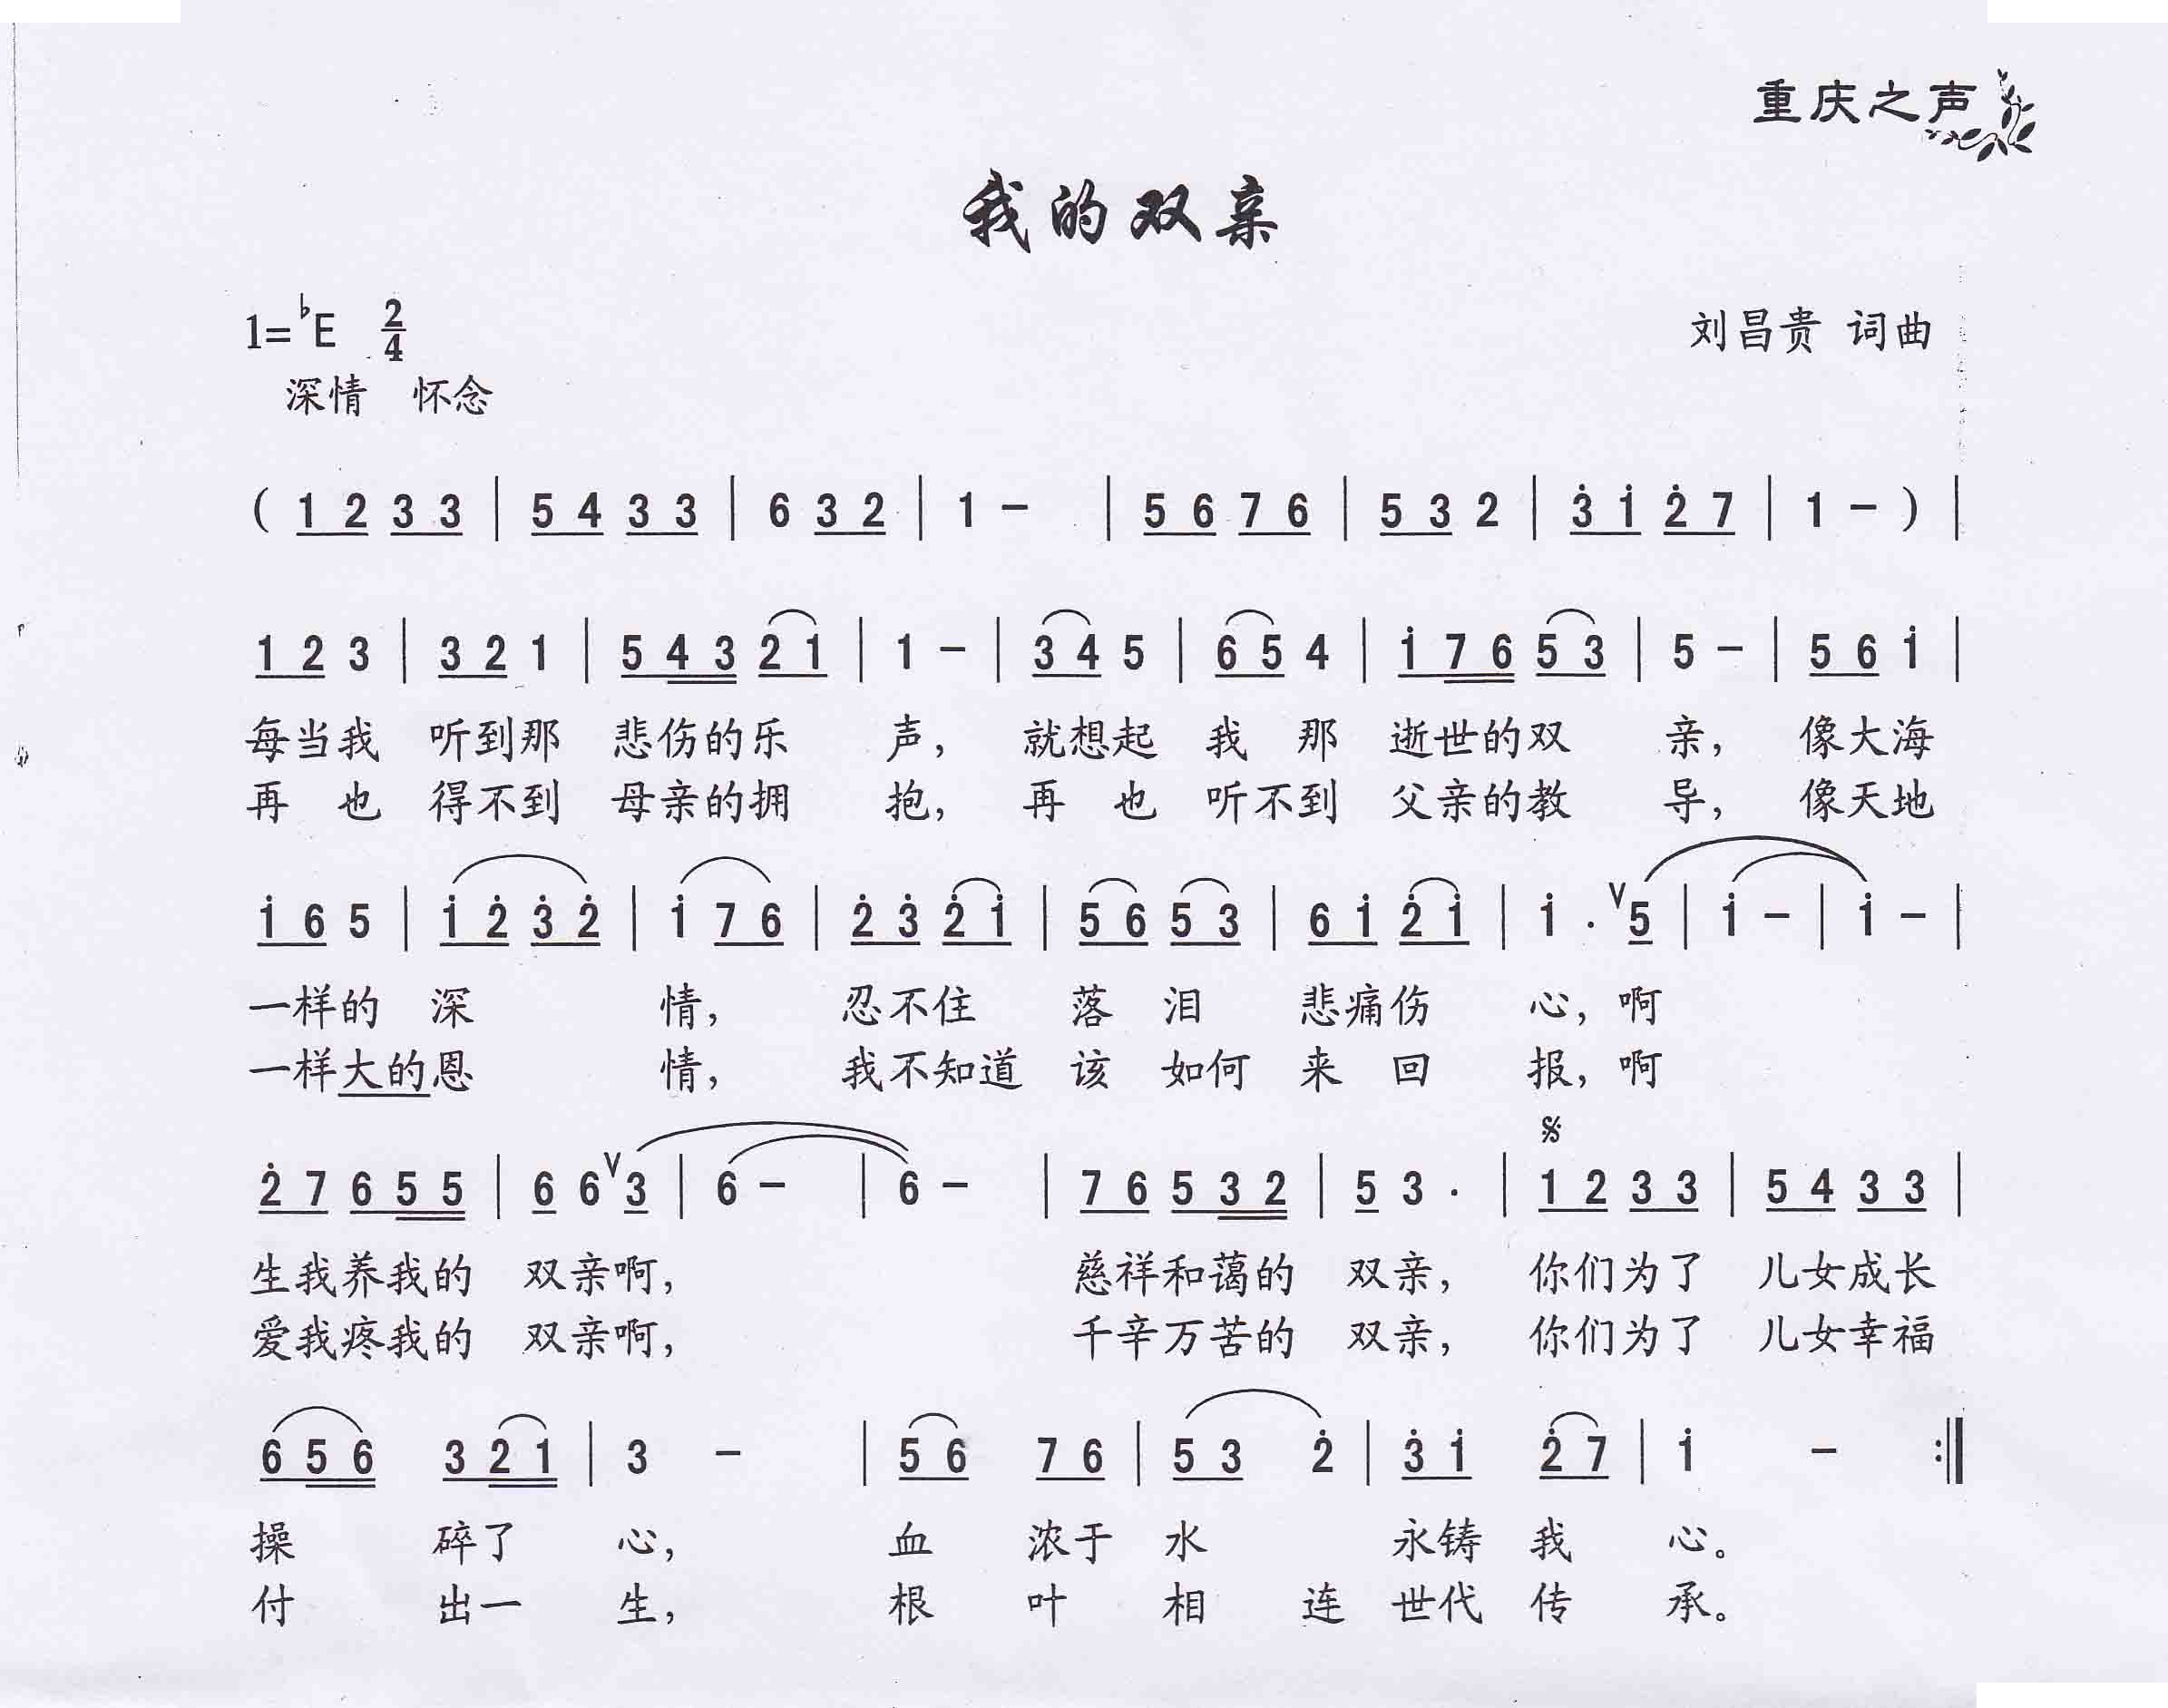 重庆之声
我的双亲
1=♭E 2/4
刘昌贵 词曲
深情 怀念
( 1 2 3 3 | 5 4 3 3 | 6 3 2 | 1 – | 5 6 7 6 | 5 3 2 | 3̇ 1̇ 2̇ 7 | 1 – ) |
1 2 3 | 3 2 1 | 5 4 3 2 1 | 1 – | 3 4 5 | 6 5 4 | 1̇ 7 6 5 3 | 5 – | 5 6 1̇ |
每当我 听到那 悲伤的乐 声, 就想起 我 那 逝世的双 亲, 像大海
再 也 得不到 母亲的拥 抱, 再 也 听不到 父亲的教 导, 像天地
1̇ 6 5 | 1̇ 2̇ 3̇ 2̇ | 1̇ 7 6 | 2̇ 3̇ 2̇ 1̇ | 5 6 5 3 | 6 1̇ 2̇ 1̇ | 1̇ · ∨ 5 | 1̇ – | 1̇ – |
一样的 深 情, 忍不住 落 泪 悲痛伤 心, 啊
一样大的恩 情, 我不知道 该 如何 来 回 报, 啊
𝄋
2̇ 7 6 5 5 | 6 6 ∨ 3 | 6 – | 6 – | 7 6 5 3 2 | 5 3 · | 1 2 3 3 | 5 4 3 3 |
生我养我的 双亲啊, 慈祥和蔼的 双亲, 你们为了 儿女成长
爱我疼我的 双亲啊, 千辛万苦的 双亲, 你们为了 儿女幸福
6 5 6 3 2 1 | 3 – | 5 6 7 6 | 5 3 2̇ | 3̇ 1̇ 2̇ 7 | 1̇ – :‖
操 碎了 心, 血 浓于 水 永铸 我 心。
付 出一 生, 根 叶 相 连 世代 传 承。